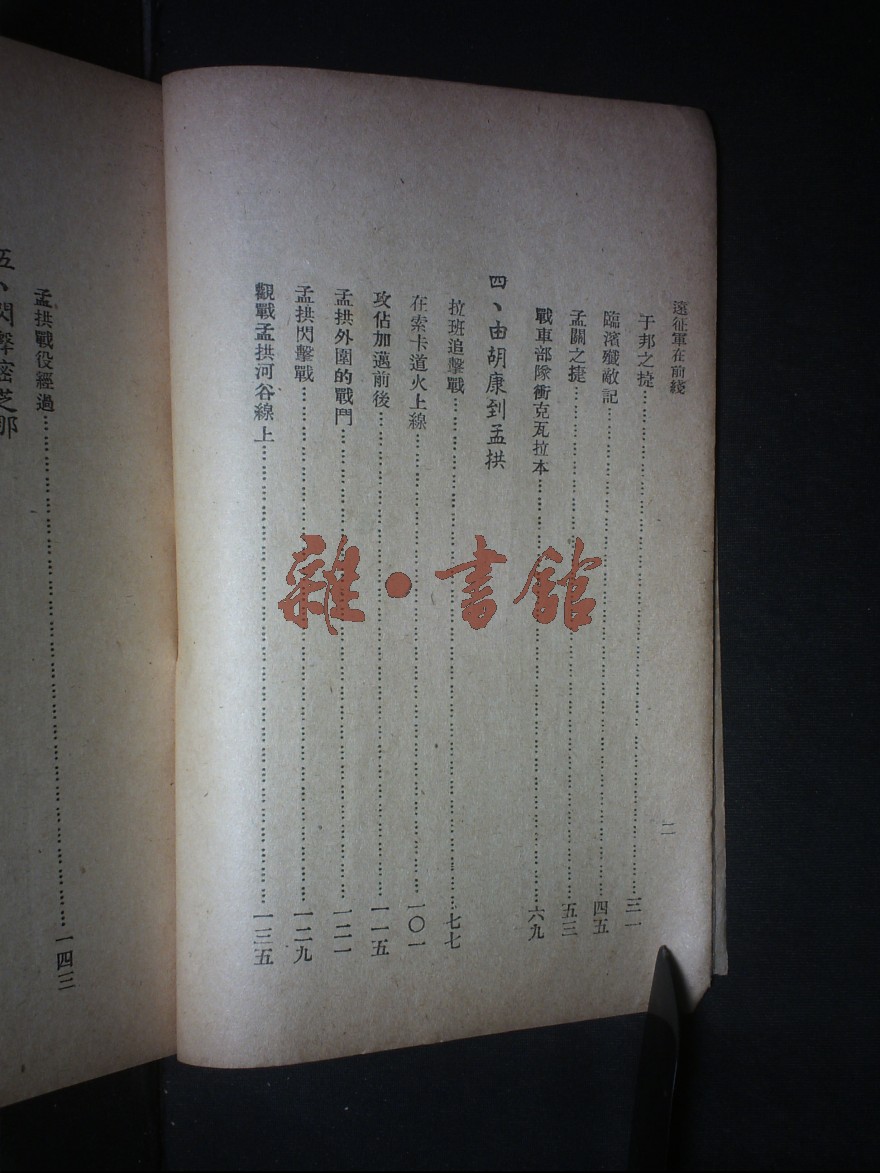 遠征軍在前綫
二
于邦之捷⋯⋯⋯⋯⋯⋯三一
臨濱殲敵記⋯⋯⋯⋯⋯⋯四五
孟關之捷⋯⋯⋯⋯⋯⋯五三
戰車部隊衝克瓦拉本⋯⋯⋯⋯⋯⋯六九
四、由胡康到孟拱
拉班追擊戰⋯⋯⋯⋯⋯⋯七七
在索卡道火上線⋯⋯⋯⋯⋯⋯一〇一
攻佔加邁前後⋯⋯⋯⋯⋯⋯一一五
孟拱外圍的戰鬥⋯⋯⋯⋯⋯⋯一二一
孟拱閃擊戰⋯⋯⋯⋯⋯⋯一二九
觀戰孟拱河谷線上⋯⋯⋯⋯⋯⋯一三五
孟拱戰役經過⋯⋯⋯⋯⋯⋯一四三
五、閃擊密芝那
雜·書館